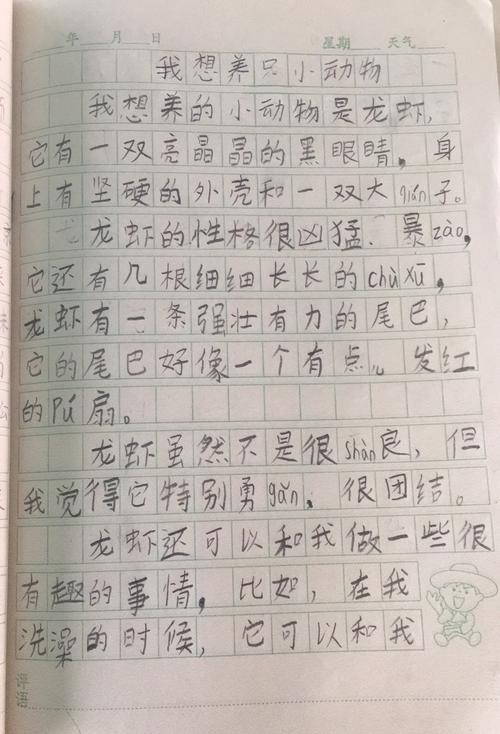 年 月 日 星期 天气
我想养只小动物
我想养的小动物是龙虾,
它有一双亮晶晶的黑眼睛，身
上有坚硬的外壳和一双大qián子。
龙虾的性格很凶猛、暴zào,
它还有几根细细长长的chùxū,
龙虾有一条强壮有力的尾巴,
它的尾巴好像一个有点儿发红
的Pú扇。
龙虾虽然不是很shàn良，但
我觉得它特别勇gǎn、很团结。
龙虾还可以和我做一些很
有趣的事情，比如，在我
洗澡的时候，它可以和我
评语